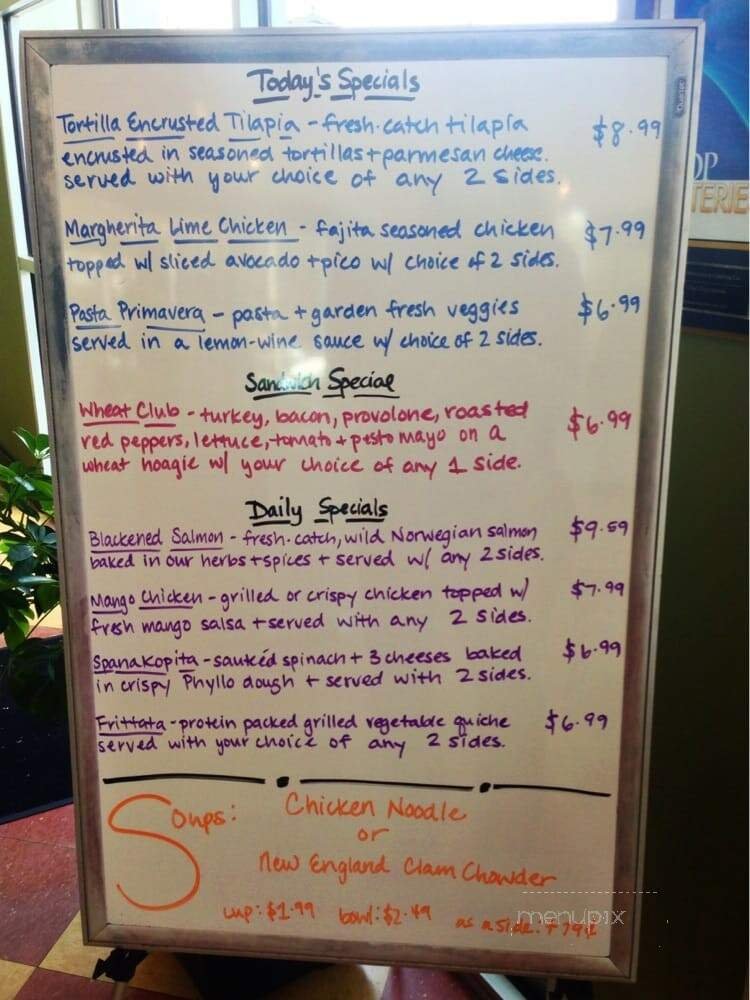 Today's Specials
Tortilla Encrusted Tilapia - fresh-catch tilapia $8.99
encrusted in seasoned tortillas + parmesan cheese.
served with your choice of any 2 sides.
Margherita Lime Chicken - fajita seasoned chicken $7.99
topped w/ sliced avocado + pico w/ choice of 2 sides.
Pasta Primavera - pasta + garden fresh veggies $6.99
served in a lemon-wine sauce w/ choice of 2 sides.
Sandwich Special
Wheat Club - turkey, bacon, provolone, roasted $6.99
red peppers, lettuce, tomato + pesto mayo on a
wheat hoagie w/ your choice of any 1 side.
Daily Specials
Blackened Salmon - fresh-catch, wild Norwegian salmon $9.59
baked in our herbs + spices + served w/ any 2 sides.
Mango Chicken - grilled or crispy chicken topped w/ $7.99
fresh mango salsa + served with any 2 sides.
Spanakopita - sautéd spinach + 3 cheeses baked $6.99
in crispy Phyllo dough + served with 2 sides.
Frittata - protein packed grilled vegetable quiche $6.99
served with your choice of any 2 sides.
Soups: Chicken Noodle
or
New England Clam Chowder
cup: $1.99 bowl: $2.49 as a side: + 79¢
menupix
Quartet
OP
TERIE